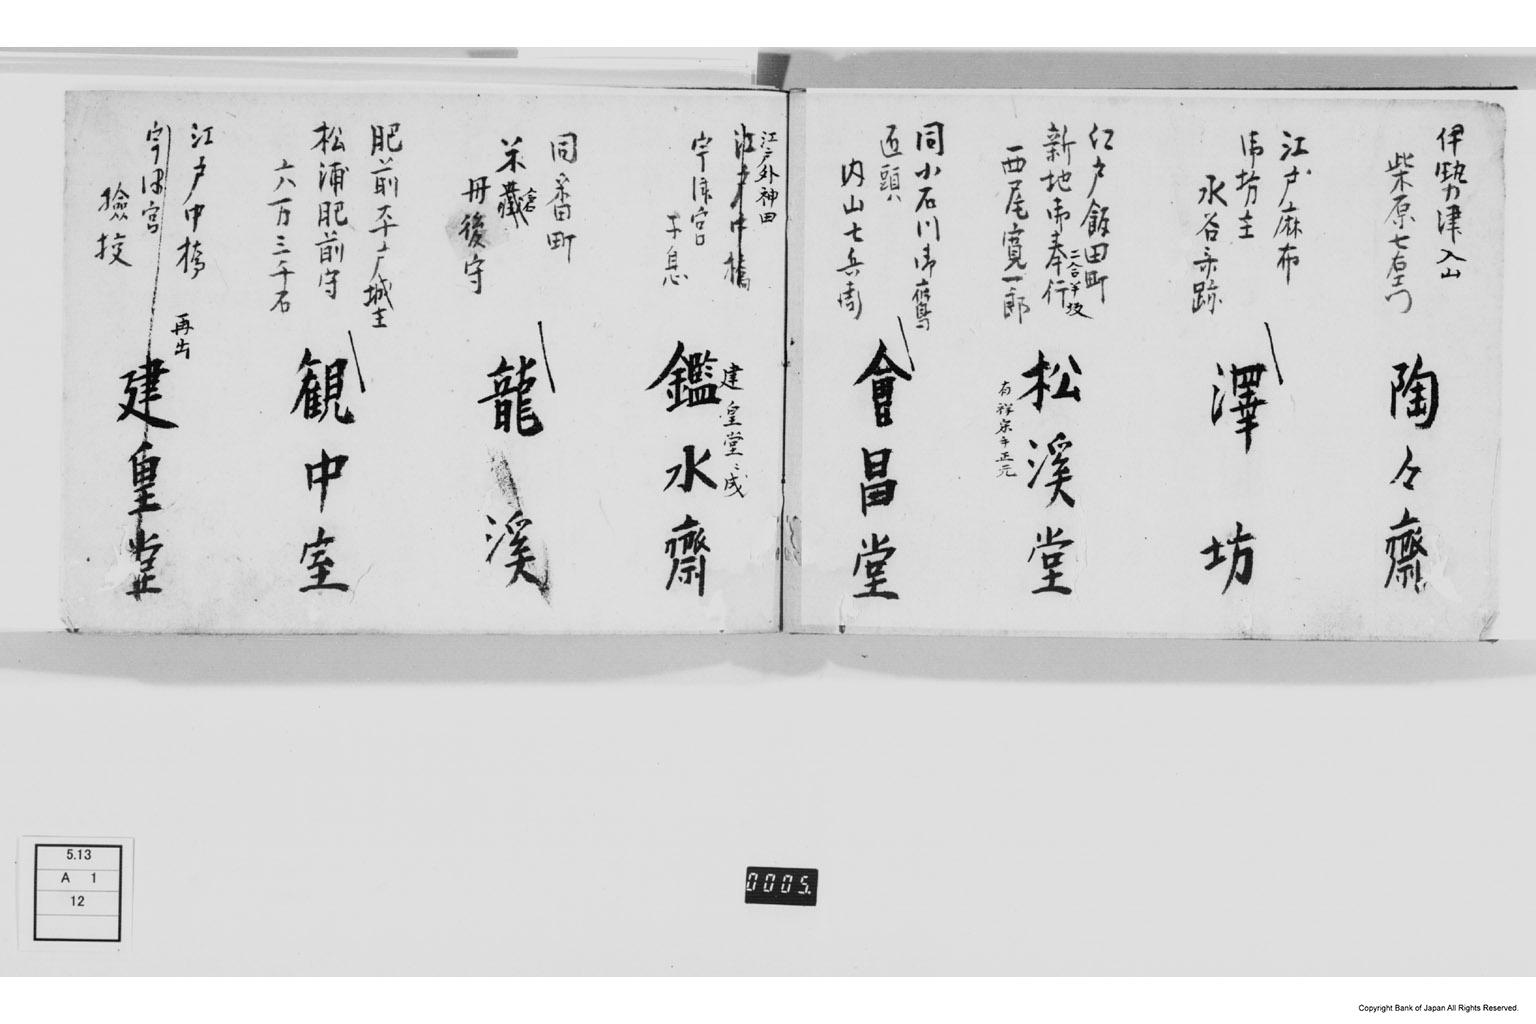 伊勢津入山
柴原七左エ門
陶々齋
江戸麻布
御坊主
水谷宗跡
澤坊
江戸飯田町
二合半坂
新地御奉行
西尾寛一郎
松溪堂
同小石川御鷹
匠頭
内山七兵衛
會昌堂
江戸外神田
江戸中橋
宇津宮
子息
建皇堂ミ成
鑑水齋
同番町
米倉
丹後守
龍溪
肥前平戸城主
松浦肥前守
六万三千石
観中室
江戸中橋
宇津宮
撿挍
再出
建皇堂
5.13
A 1
12
0005.
Copyright Bank of Japan All Rights Reserved.